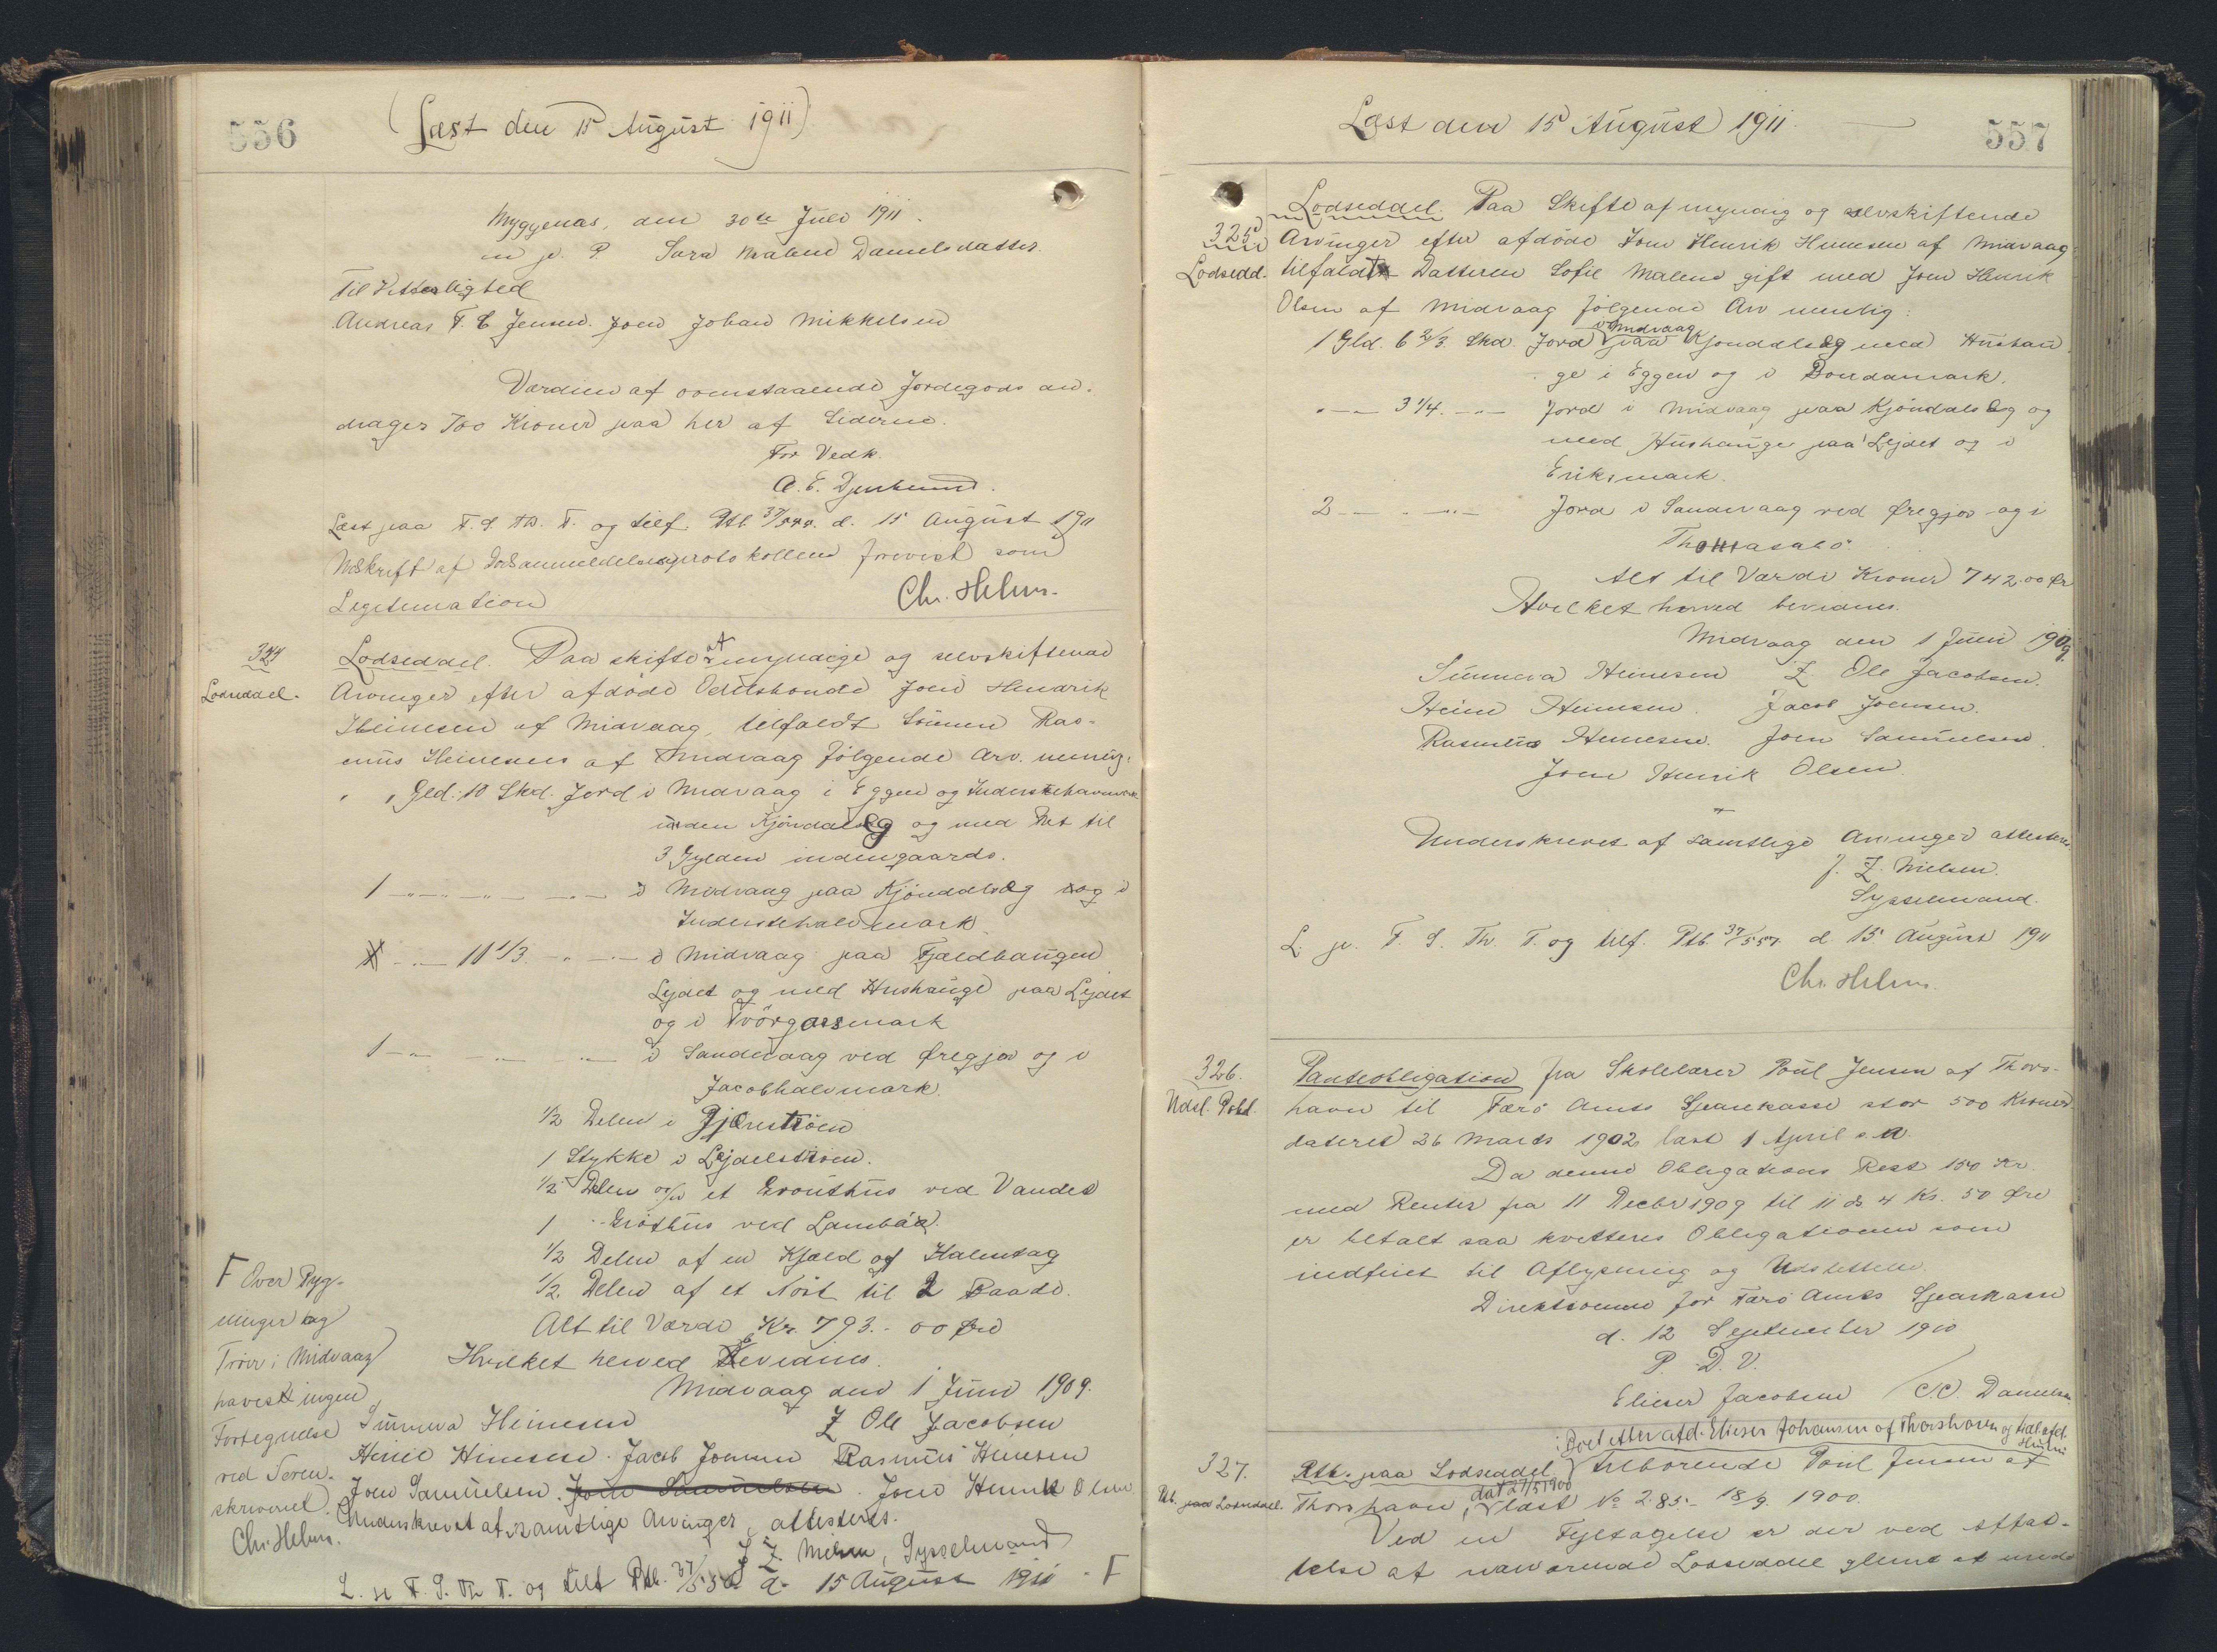 556
(Læst den 15 August 1911)
Myggenæs, den 30te Juli 1911.
m. p. P Sara Malene Danielsdatter.
Til Vitterlighed
Andreas F. E Jensen. Joen Johan Mikkelsen
Værdien af ovenstaaende Jordegods an-
drager 700 Kroner paa her af Siderne.
For Vedk.
A. E. Djurhuus.
Læst paa F. S. Th. T. og tilf. Ptb. 37/544. d. 15 August 1911
Udskrift af protokollen forevist som
Legitimation
Chr. Helms.
324
Lodseddel.
Lodseddel. Paa skifte af myndige og selvskiftende
Arvinger efter afdöde Odelsbonde Joen Hendrik
Heinesen af Midvaag, tilfaldt Sönnen Ras-
mus Heinesen af Midvaag fölgende Arv. nemlig:
" " Gld. 10 Skd. Jord i Midvaag i Eggen og Inderstehavnmark
uden Kjöndalsæg og med Ret til
3 Gylden indengaards.
1 -"- -"- -"- i Midvaag paa Kjöndalsæg og i
Inderstehalvmark.
-"- 11 1/3 -"- -"- i Midvaag paa Fjeldhaugen
Lejdet og med Hushauge paa Lejdet
og i Tvörgarsmark
1 -"- -"- -"- i Sandevaag ved Öregjov og i
Jacobhalvmark.
1/2 Delen i
1 Stykke i
1/2 Delen af et Grouthus ved Vandet
1 " Grothus ved Lambáa.
1/2 Delen af en Kjæld af Halmtag
1/2 Delen af et Nöst til 2 Baade.
Alt til Værdi Kr. 793.- 00 Öre
Hvilket herved bevidnes.
Midvaag den 1 Juni 1909.
Sunneva Heinesen Z Ole Jacobsen
Heine Heinesen. Jacob Joensen Rasmus Heinesen
Joen Samuelsen. Joen Samuelsen. Joen Henrik Olsen
Underskrevet af samtlige Arvinger, attesteres.
J. Z. Nielsen, Sysselmand
L. p. F. S. Th T. og tilf Ptb. 37/556 d. 15 August 1911 - F
F Over Byg-
ninger og
Tröer i Midvaag
haves ingen
Fortegnelse
ved Soren-
skriveriet.
Chr. Helms.
Læst den 15 August 1911.
557
325
Lodsedd.
Lodseddel. Paa Skifte af myndig og selvskiftende
Arvinger efter afdöde Joen Henrik Heinesen af Midvaag
tilfaldt Datteren Sofie Malene gift med Joen Henrik
Olsen af Midvaag fölgende Arv nemlig:
1 Gld. 6 2/3 Skd. Jord i Midvaag paa Kjöndalsæg med Hushau
ge i Eggen og i Bondamark.
" -"- 3 1/4 -"- Jord i Midvaag paa Kjöndalsæg og
med Hushauge paa Lejdet og i
Eriksmark.
2 -"- -"- Jord i Sandevaag ved Öregjov og i
Alt til Værdi Kroner 742.00 Ör
Hvilket herved bevidnes.
Midvaag den 1 Juni 1909.
Sunneva Heinesen Z Ole Jacobsen.
Heine Heinesen. Jacob Joensen.
Rasmus Heinesen. Joen Samuelsen.
Joen Henrik Olsen.
Underskrevet af samtlige Arvinger attesteres
J. Z. Nielsen.
Sysselmand.
L. p. F. S. Th. T. og tilf. Ptb. 37/557 d. 15 August 1911
Chr. Helms.
326.
Udsl. Pobl.
Panteobligation fra Skolelærer Poul Jensen af Thors-
havn til Færö Amts Sparekasse stor 500 Kroner
dateret 26 Marts 1902 læst 1 April s. A.
Da denne Obligations Rest 150 Kr.
med Renter fra 11 Decbr 1909 til 11 ds 4 Kr. 50 Öre
er betalt saa kvitteres Obligationen som
indfriet til Aflysning og Udslettelse.
Direktionen for Færö Amts Sparkasse
d. 12 September 1910
P. D. V.
Elieser Jacobsen / C.C. Danielsen
327.
Rtb. paa Lodseddel.
i Boet efter afd. Elieser Johansen af Thorshavn og hdl. afdl. Hustru
Rtb. paa Lodseddel V tilhörende Poul Jensen af
dat 27/5 1900
Thorshavn, V læst No 285 - 18/9. 1900.
Ved en Fejltagelse er der ved Affat-
telse af nærværende Lodseddel glemt at